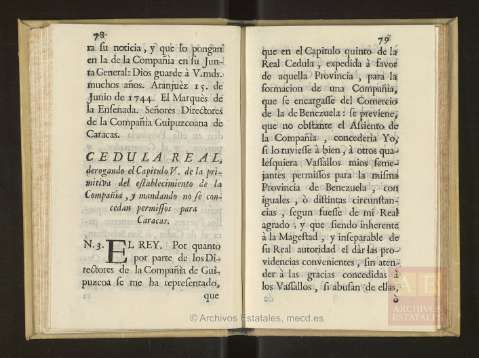 78
ra su noticia, y que lo pongan
en la de la Compañia en su Jun-
ta General: Dios guarde à V.mds.
muchos años. Aranjuèz 15. de
Junio de 1744. El Marquès de
la Ensenada. Señores Directores
de la Compañia Guipuzcoana de
Caracas.
CEDULA REAL,
derogando el Capitulo V. de la pri-
mitiva del establecimiento de la
Compañia, y mandando no se con-
cedan permissos para
Caracas.
N. 3. EL REY. Por quanto
por parte de los Di-
rectores de la Compañia de Gui-
puzcoa se me ha representado,
que
79
que en el Capitulo quinto de la
Real Cedula, expedida à favor
de aquella Provincia, para la
formacion de una Compañia,
que se encargasse del Comercio
de la de Benezuela: se previene,
que no obstante el Assiento de
la Compañia, concederia Yo,
si lo tuviesse à bien, à otros qua-
lesquiera Vassallos mios seme-
jantes permissos para la misma
Provincia de Benezuela, con
iguales, ò distintas circunstan-
cias, segun fuesse de mi Real
agrado; y que siendo inherente
à la Magestad, y inseparable de
su Real autoridad el dàr las pro-
videncias convenientes, sin aten-
der à las gracias concedidas à
los Vassallos, si abusan de ellas,
ò
AE
ARCHIVOS
ESTATALES
© Archivos Estatales, mecd.es